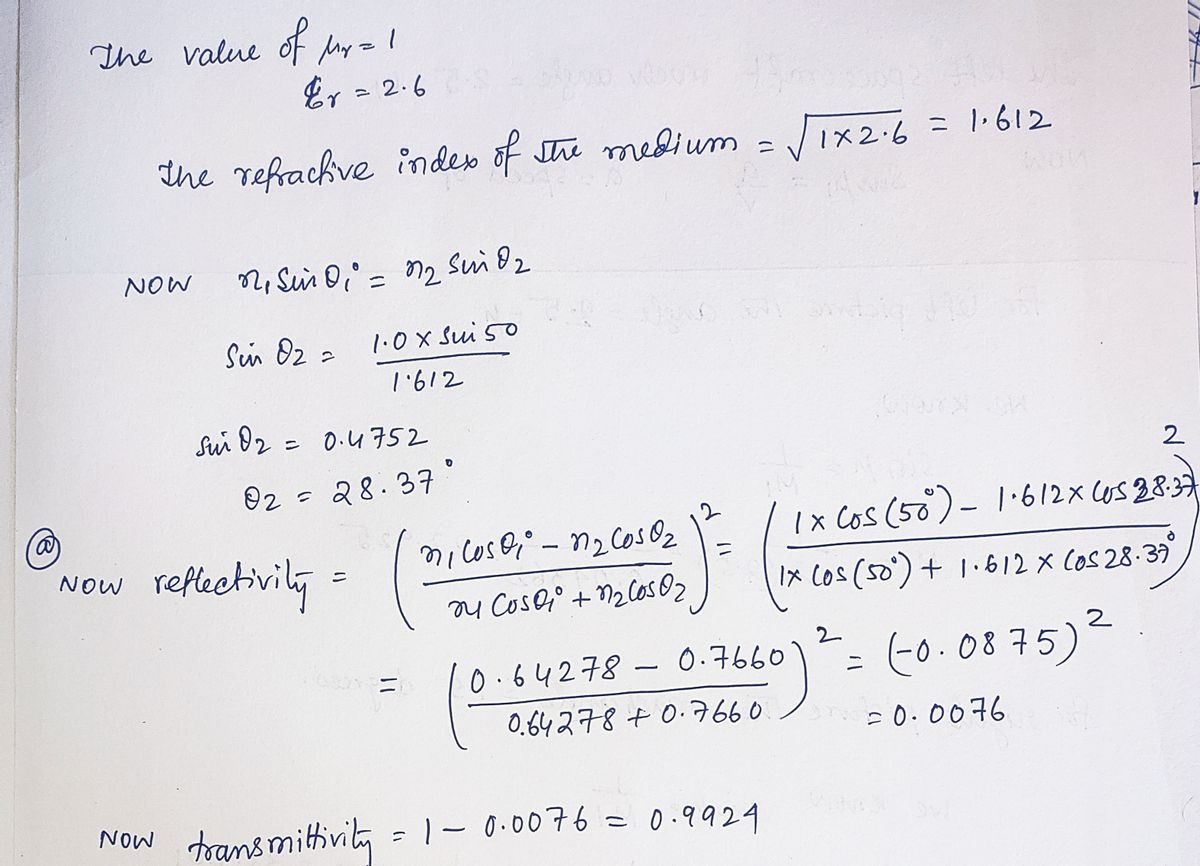 The value of μr = 1
εr = 2.6
The refractive index of the medium = √1×2.6 = 1.612
NOW n₁ Sin θi = n₂ Sin θ2
Sin θ2 = 1.0 × Sin 50 / 1.612
Sin θ2 = 0.4752
θ2 = 28.37°
(a)
NOW reflectivity = (n₁ Cos θi − n₂ Cos θ2 / n₁ Cos θi + n₂ Cos θ2)² = (1× Cos (50°) − 1.612× Cos 28.37 / 1× Cos (50°) + 1.612 × Cos 28.37°)²
= (0.64278 − 0.7660 / 0.64278 + 0.7660)² = (-0.0875)²
= 0.0076
NOW transmittivity = 1 − 0.0076 = 0.9924